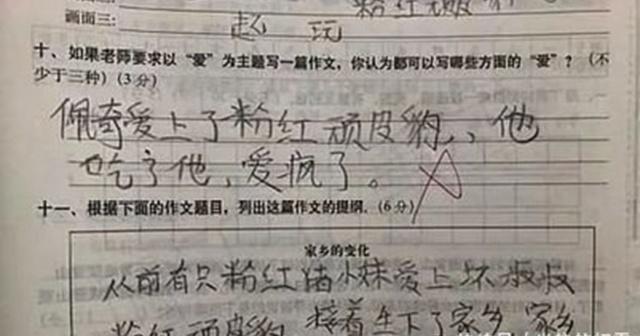 粉红顽皮豹
画面三:
赵 玩
十、如果老师要求以“爱”为主题写一篇作文,你认为都可以写哪些方面的“爱”?(不
少于三种)(3分)
佩奇爱上了粉红顽皮豹,他
吃了他,爱疯了。
十一、根据下面的作文题目,列出这篇作文的提纲.(6分)
家乡的变化
从前有只粉红猪小妹爱上坏叔叔
粉红顽皮豹 接着生下了家乡 家乡